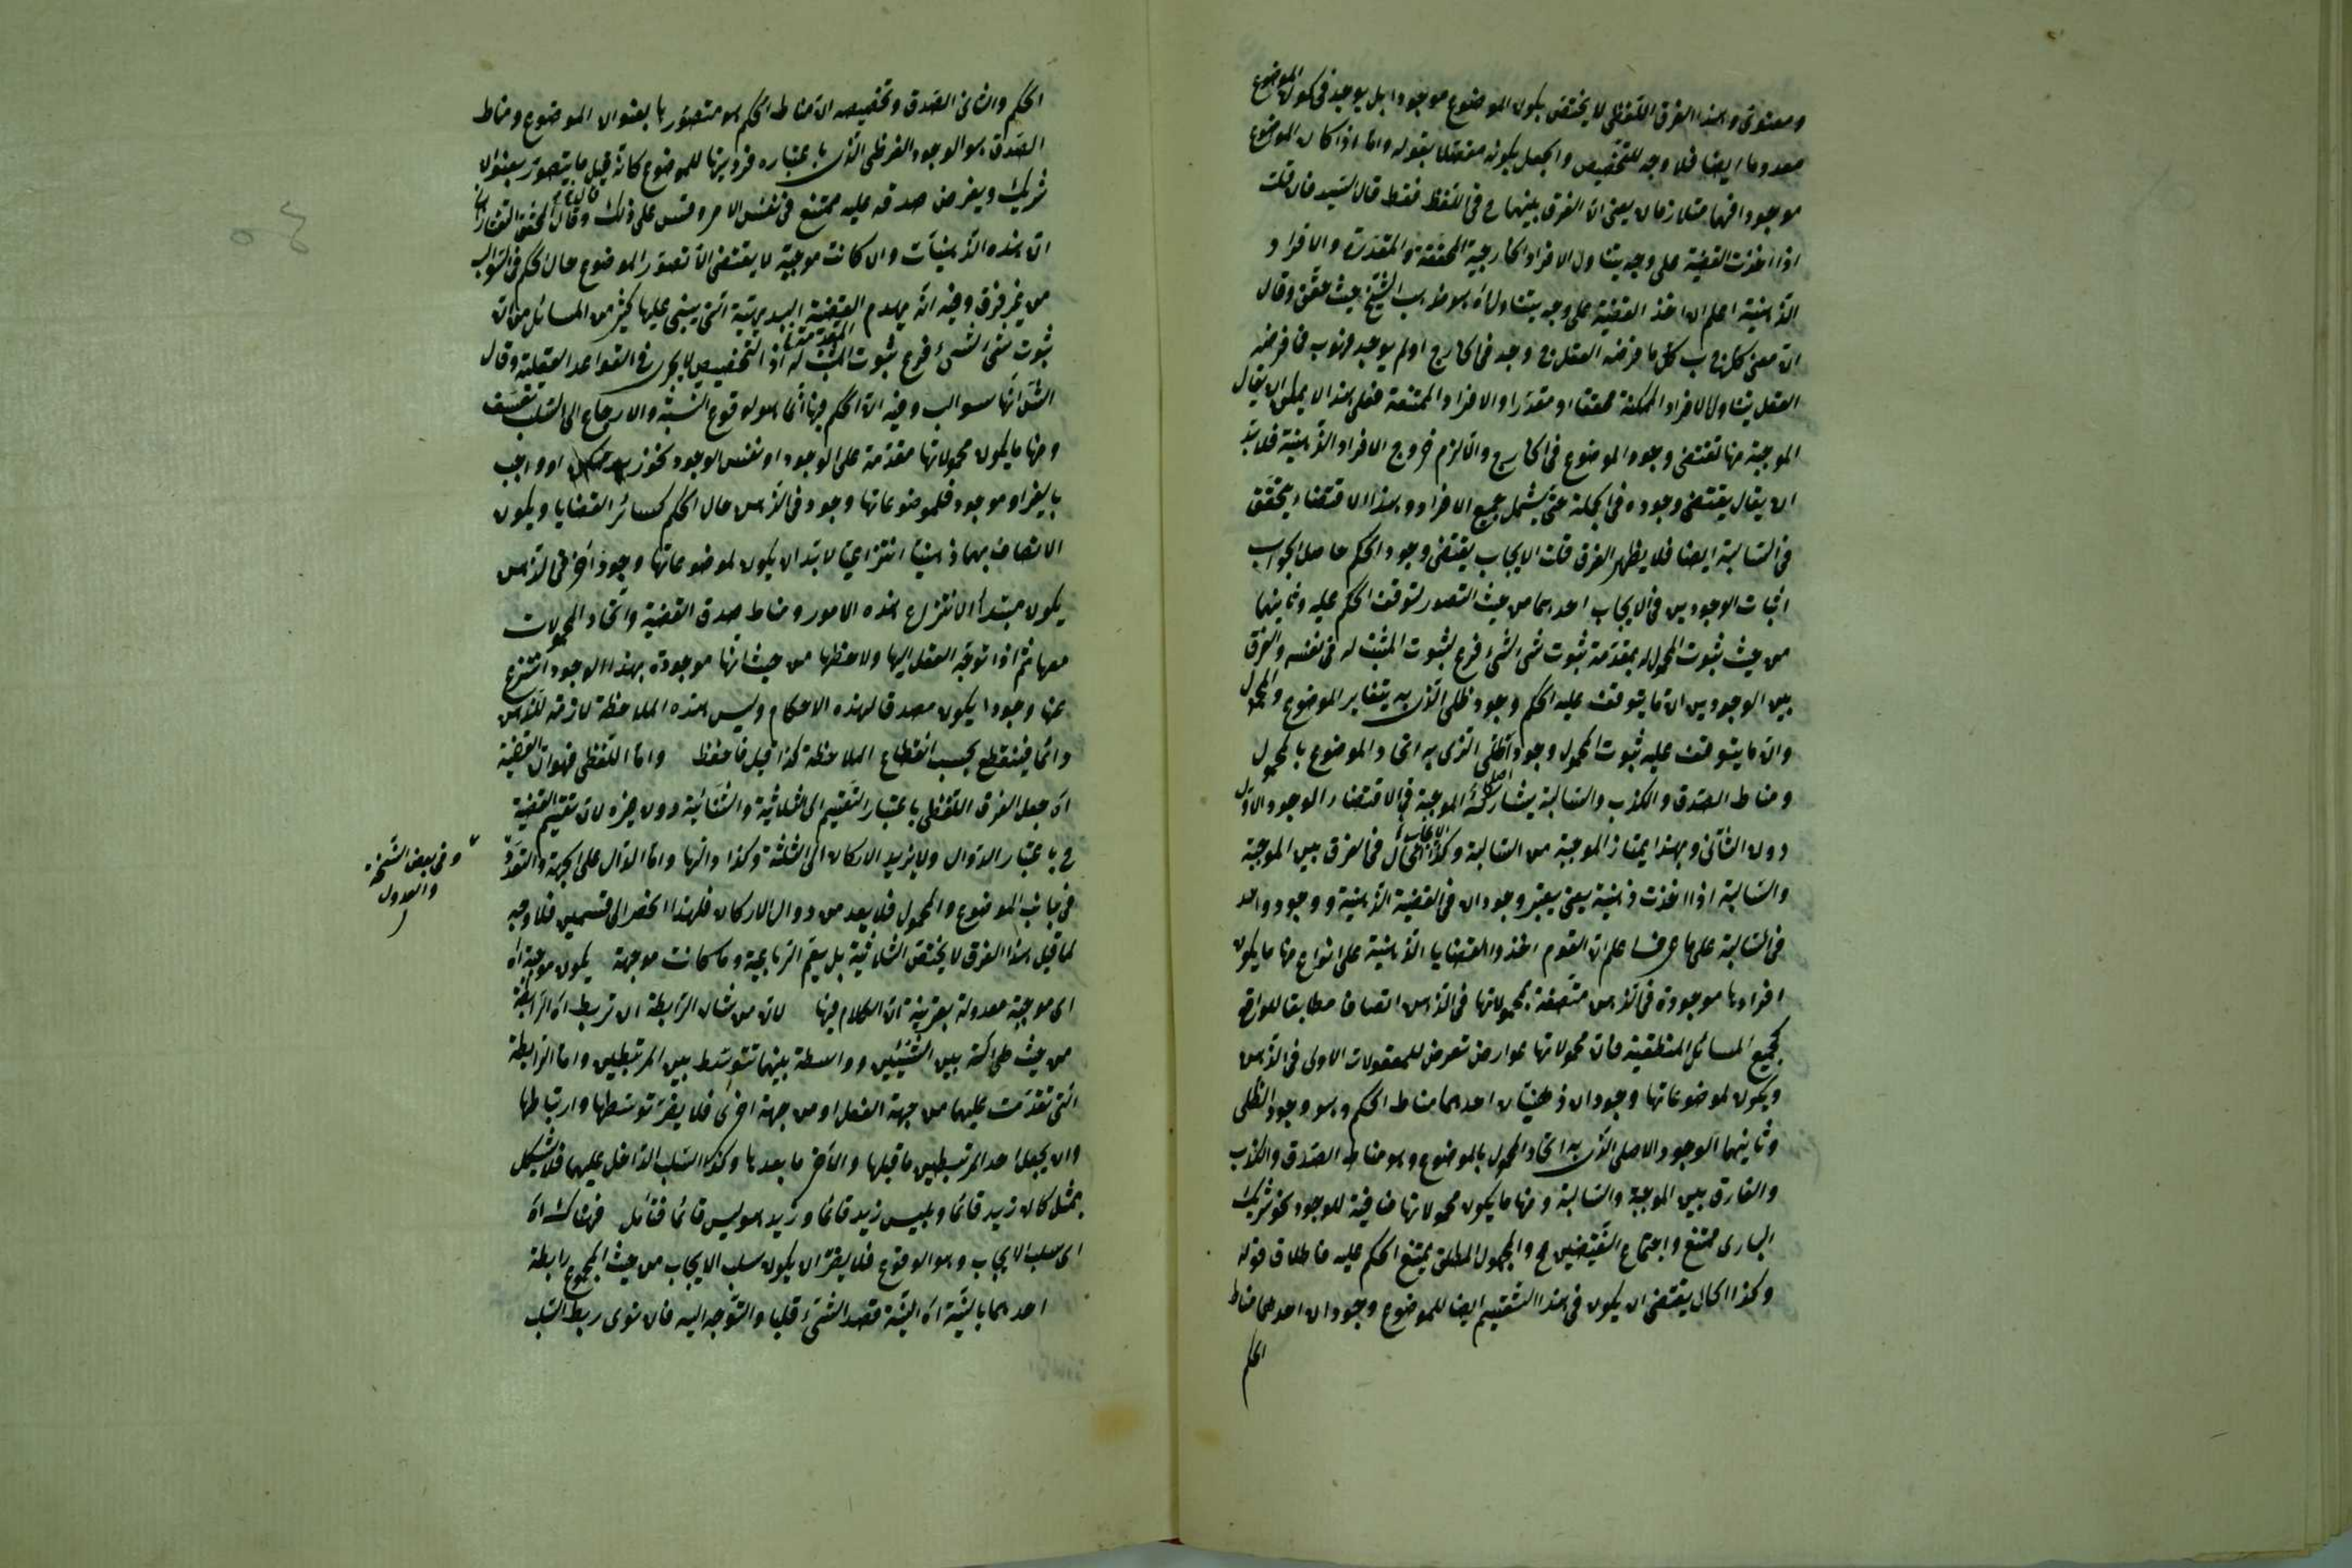 ومعنوى وهذا الفرق اللفظى لا يختص بكون الموضوع موجودا بل يوجد فى كون الموضوع
معدوما ايضا فلا وجه للتخصيص والجعل بكونه مفصلا بقوله واما اذا كان الموضوع
موجودا فهما متلازمان يعنى ان الفرق بينهما ح فى اللفظ فقط قال السيد فان قلت
اذا اخذت القضية على وجه يتناول الافراد الخارجية المحققة والمقدرة والافراد
الذهنية اعلم ان اخذ القضية على وجه يتناول اه هو مذهب الشيخ حيث حقق وقال
ان معنى كل ج ب كل ما فرضه العقل ج وجد فى الخارج او لم يوجد فهو ب فما فرضه
العقل يتناول الافراد الممكنة محققا او مقدرا والافراد الممتنعة فعلى هذا لا يمكن ان يقال
الموجبة منها تقتضى وجود الموضوع فى الخارج والا لزم خروج الافراد الذهنية فلا بد
ان يقال يقتضى وجوده فى الجملة حتى يشمل جميع الافراد وهذا الاقتضاء يتحقق
فى السالبة ايضا فلا يظهر الفرق قلت الايجاب يقتضى وجود الحكم حاصل الجواب
اثبات الوجودين فى الايجاب احدهما من حيث التصور لتوقف الحكم عليه وثانيهما
من حيث ثبوت المحمول له بمقدمة ثبوت شئ لشئ فرع لثبوت المثبت له فى نفسه والفرق
بين الوجودين ان ما يتوقف عليه الحكم وجود ظلى الذى به يتغاير الموضوع والمحمول
وان ما يتوقف عليه ثبوت المحمول وجود اصلى الذى به اتحاد الموضوع بالمحمول
ومناط الصدق والكذب والسالبة يشارك الموجبة فى الاقتضاء الوجود الاول
دون الثانى وبهذا يمتاز الموجبة من السالبة وكذا الحال فى الفرق بين الموجبة
والسالبة اذا اخذت ذهنية يعنى يعتبر وجودان فى القضية الذهنية ووجود واحد
فى السالبة على ما عرف اعلم ان القوم اخذوا القضايا الذهنية على انواع منها ما يكون
افرادها موجودة فى الذهن متصفة بمحمولاتها فى الذهن اتصافا مطابقا للواقع
كجميع المسائل المنطقية فان محمولاتها عوارض تعرض للمعقولات الاولى فى الذهن
ويكون لموضوعاتها وجودان ذهنيان احدهما مناط الحكم وهو وجود الظلى
وثانيهما الوجود الاصلى الذى به اتحاد المحمول بالموضوع وهو مناط الصدق والكذب
والفارق بين الموجبة والسالبة ومنها ما يكون محمولاتها منافية للوجود نحو شريك
البارى ممتنع واجتماع النقيضين مح والمجهول المطلق يمتنع الحكم عليه فاطلاق قوله
وكذا الحال يقتضى ان يكون فى هذا التقسيم ايضا للموضوع وجودان احدهما مناط
الحكم
الحكم والثانى الصدق وتخصيصه ان مناط الحكم هو متصور بها بعنوان الموضوع ومناط
الصدق هو الوجود الفرضى الذى باعتباره فرديتها للموضوع كانه قيل ما يتصور بعنوان
شريك ويفرض صدقه عليه ممتنع فى نفس الامر وقس على ذلك وقال المحقق التفتازانى
ان هذه الذهنيات وان كانت موجبة لا يقتضى الا تصور الموضوع حال الحكم فى السوالب
من غير فرق وفيه انه يهدم القضية البديهية التى يبتنى عليها كثير من المسائل من ان
ثبوت شئ الشئ فرع ثبوت المثبت له اذ التخصيص لا يجرى فى القواعد العقلية وقال
انها سوالب وفيه ان الحكم فيها انما هو لوقوع النسبة والارجاع الى السلب تعسف
ومنها ما يكون محمولاتها مقدمة على الوجود او نفس الوجود نحو زيد ممكن او واجب
بالغير او موجود فلموضوعاتها وجود فى الذهن حال الحكم كسائر القضايا ويكون
الاتصاف بهما ذهنيا انتزاعيا لا بد ان يكون لموضوعاتها وجود آخر فى الذهن
يكون مبدأ لانتزاع هذه الامور ومناط صدق القضية واتحاد المحمولات
معها ثم اذا توجه العقل اليها ولاحظها من حيث انها موجودة بهذا الوجود انتزع
عنها وجودا يكون مصدقا لهذه الاحكام وليس هذه الملاحظة لازمة للذهن
دائما فينقطع بحسب انقطاع الملاحظة كذا قيل فاحفظ واما اللفظى فهو ان القضية
اه جعل الفرق اللفظى باعتبار التقسيم الى الثلاثية والثنائية دون غيره لان تقسيم القضية
ح باعتبار الدوال ولا يزيد الاركان الى الثلثة وكذا دالها واما الدال على الجهة والتعدد
فى جانب الموضوع والمحمول فلا يعد من دوال الاركان فلهذا انحصر الى قسمين فلا وجه
لما قيل هذا الفرق لا يختص الثلاثية بل يعم الرباعية وما كانت موجهة يكون موجبة اه
اى موجبة معدولة بقرينة ان الكلام فيها لان من شان الرابطة ان تربط اه الرابطة
من حيث هى حاكمة بين الشيئين وواسطة بينهما تتوسط بين المرتبطين واما الرابطة
التى تقدمت عليهما من جهة الفعل او من جهة اخرى فلا يضر توسطها وارتباطها
وان يجعل احد المرتبطين ما قبلها والآخر ما بعدها وكذا السلب الداخل عليهما فلا يشكل
بمثل كان زيد قائما وليس زيد قائما وزيد هو ليس قائما فتأمل فهناك اه
اى سلب الايجاب وهو الوقوع فلا يضر ان يكون سلب الايجاب من حيث المجموع رابطة
احدهما بالنية اه النية قصد الشئ قلبا والتوجه اليه فان نوى ربط السلب
وفى بعض النسخة
والعدول